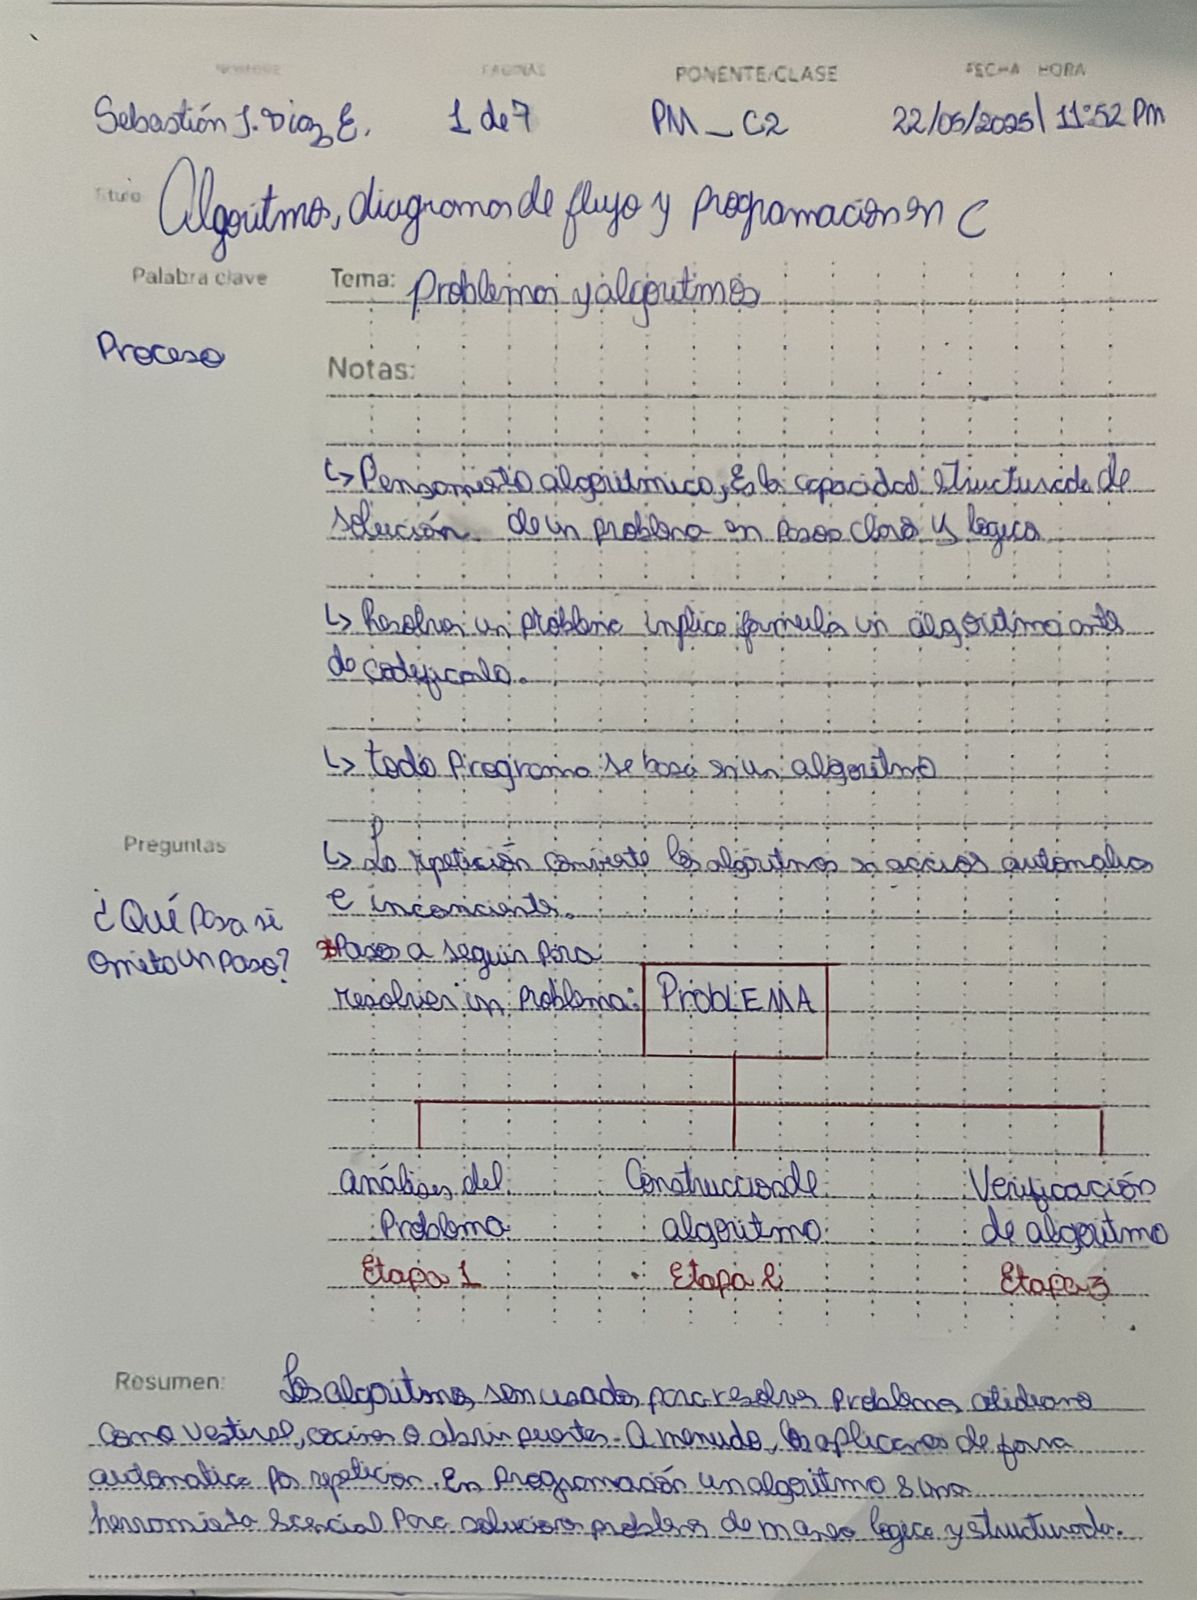 NOMBRE PAGINAS PONENTE/CLASE FECHA HORA
Sebastián J. Diaz E. 1 de 7 PM_C2 22/05/2025| 11:52 PM
Titulo Algoritmos, diagramas de flujo y programacion en C
Palabra clave Tema: Problemas y algoritmos
Proceso
Notas:
↳ Pensamiento algoritmico, Es la capacidad estructurada de
solución de un problema en pasos claro y logico
↳ Resolver un problema implica formula un algoritmo ante
de codificarlo.
↳ todo Programa se basa en un algoritmo
Preguntas
↳ La repetición convierte los algoritmos en automalicos
e inconciente.
¿Qué Pasa si
Omito un Paso?
*Pasos a seguir para
resolver un problema: ProbLEMA
análises del
Problema
Etapa 1
Construccion de
algoritmo
Etapa 2
Verificación
de algoritmo
Etapa 3
Resumen: Los algoritmos son usados para resolver Problema cotidiano
como vestirse, cocinar o abrir puertas. A menudo, los aplicamos de forma
automatica por repeticion. En Programación un algoritmo es una
herramienta Para solucionar problema de logica y structurada.